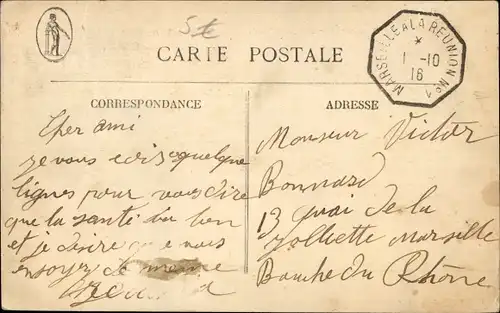 CARTE POSTALE
MARSEILLE A LA REUNION N°1
1 -10
16
CORRESPONDANCE
Cher ami
je vous ecris quelque
lignes pour vous dire
que la santé va bien
et je désire que vous
envoyez de meme
ADRESSE
Monsieur Victor
Bonnard
13 quai de la
Jolliette Marseille
Bouche du Rhône